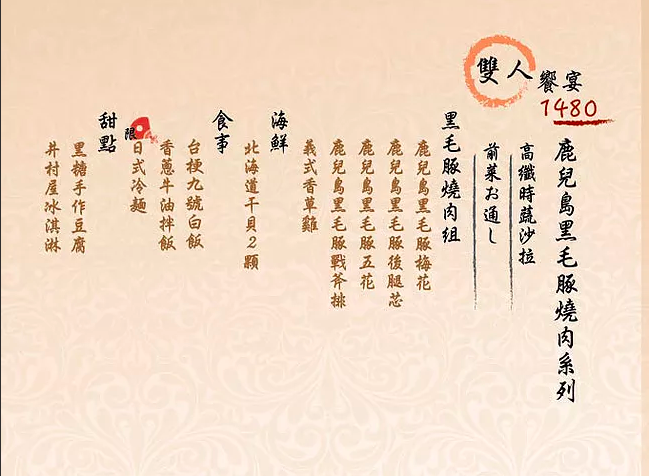 雙人饗宴
1480
鹿兒島黑毛豚燒肉系列
高纖時蔬沙拉
前菜お通し
黑毛豚燒肉組
鹿兒島黑毛豚梅花
鹿兒島黑毛豚後腿芯
鹿兒島黑毛豚五花
鹿兒島黑毛豚戰斧排
義式香草雞
海鮮
北海道干貝2顆
食事
台梗九號白飯
香蔥牛油拌飯
限
日式冷麵
甜點
黑糖手作豆腐
井村屋冰淇淋